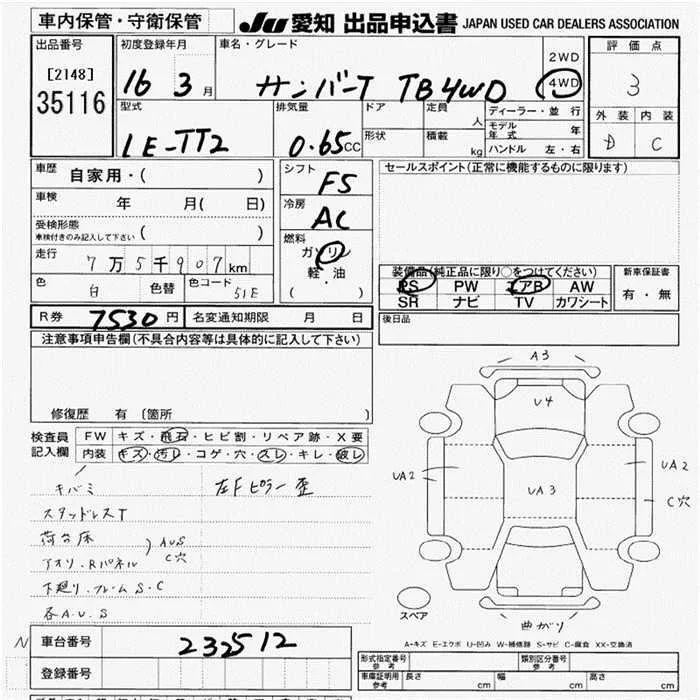 車内保管・守衛保管 JU 愛知 出品申込書 JAPAN USED CAR DEALERS ASSOCIATION
出品番号 初度登録年月 車名・グレード 2WD 評価点
[2148] 16 3 月 サンバーT TB 4WD 4WD 3
35116 型式 排気量 ドア 定員 人 ディーラー・並行 外装 内装
モデル年式 年
LE-TT2 0.65 CC 形状 積載 kg ハンドル 左・右 D C
車歴 自家用・( ) シフト F5 セールスポイント(正常に機能するものに限ります)
車検 年 月( 日) 冷房 AC
受検形態 ( )
車検付きのみ記入して下さい 燃料
走行 7万5千907km ガソリン 装備品(純正品に限り○をつけてください) 新車保証書
色 白 色替 色コード 51E 軽・油 PS PW エアB AW 有・無
( ) SR ナビ TV カワシート
R券 7530円 名変通知期限 月 日 後日品
注意事項申告欄(不具合内容等は具体的に記入して下さい)
修復歴 有 〔箇所 〕
検査員 FW キズ・飛石・ヒビ割・リペア跡・X要
記入欄 内装 キズ・汚レ・コゲ・穴・スレ・キレ・破レ
A3
U4
UA2 UA3 UA2
C穴
キバミ 左Fピラー歪
スタッドレスT
荷台床
アオリ・Rパネル AUS C穴
下廻り・フレームS・C
各A・U・S
スペア 曲がり
N 車台番号 232512
A-キズ E-エクボ U-凹み W-補修跡 S-サビ C-腐食 XX-交換済
登録番号
形式指定番号 参考 類別区分番号 参考
車庫証明用 参考 長さ cm 幅 cm 高さ cm